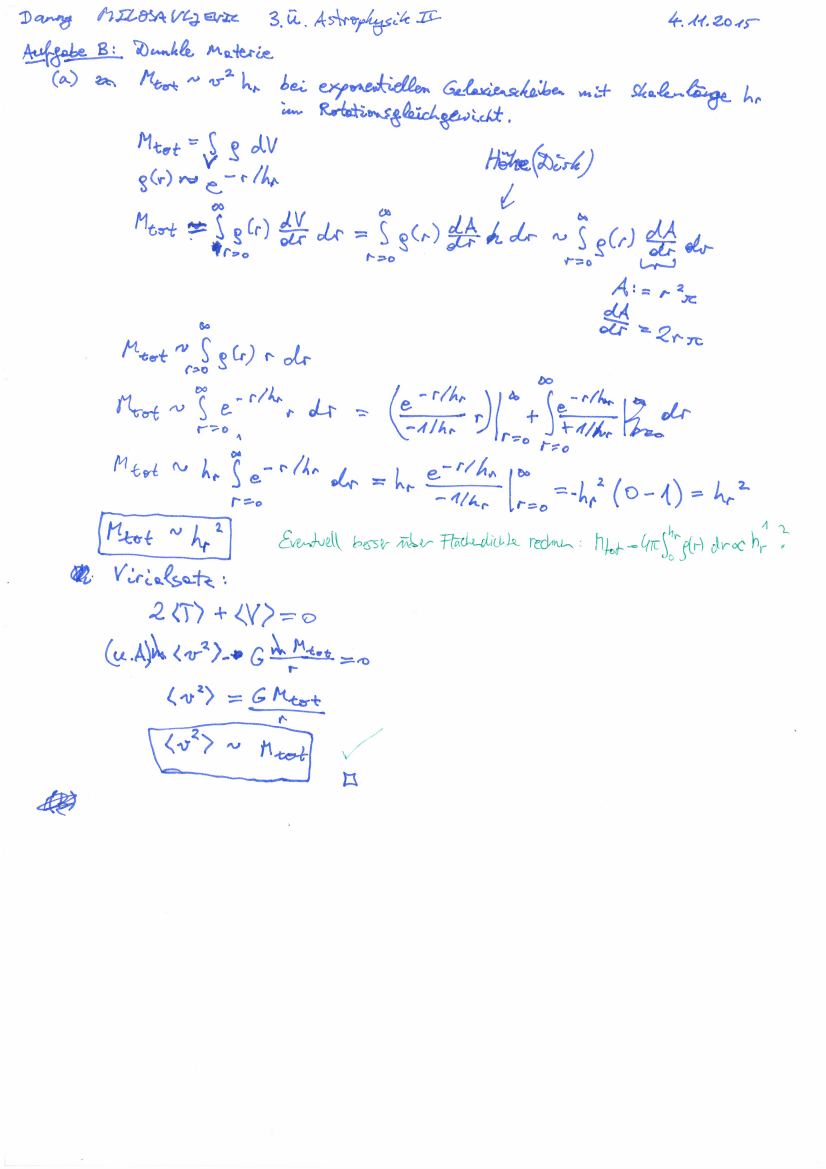 Danny MILOSAVLJEVIC 3. Ü. Astrophysik II 4.11.2015
Aufgabe B: Dunkle Materie
(a) M_tot ~ v² h_r bei exponentiellen Galaxienscheiben mit Skalenlänge h_r
im Rotationsgleichgewicht.
M_tot = ∫_V ρ dV
Höhe (Disk)
ρ(r) ~ e^{-r/h_r}
↓
M_tot = ∫_{r=0}^∞ ρ(r) dV/dr dr = ∫_{r=0}^∞ ρ(r) dA/dr h dr ~ ∫_{r=0}^∞ ρ(r) dA/dr dr
A := r²π
dA/dr = 2rπ
M_tot ~ ∫_{r=0}^∞ ρ(r) r dr
M_tot ~ ∫_{r=0}^∞ e^{-r/h_r} r dr = (e^{-r/h_r}/(-1/h_r) r)|_{r=0}^∞ + ∫_{r=0}^∞ e^{-r/h_r}/(+1/h_r) dr
M_tot ~ h_r ∫_{r=0}^∞ e^{-r/h_r} dr = h_r e^{-r/h_r}/(-1/h_r) |_{r=0}^∞ = -h_r² (0-1) = h_r²
M_tot ~ h_r²
Eventuell besser über Flächendichte rechnen: M_tot = 4π∫_0^{h_r} ρ(r) dr ∝ h_r^1 ?
Virialsatz:
2⟨T⟩ + ⟨V⟩ = 0
(u.A) m ⟨v²⟩ - G m M_tot/r = 0
⟨v²⟩ = G M_tot/r
⟨v²⟩ ~ M_tot ✓
□